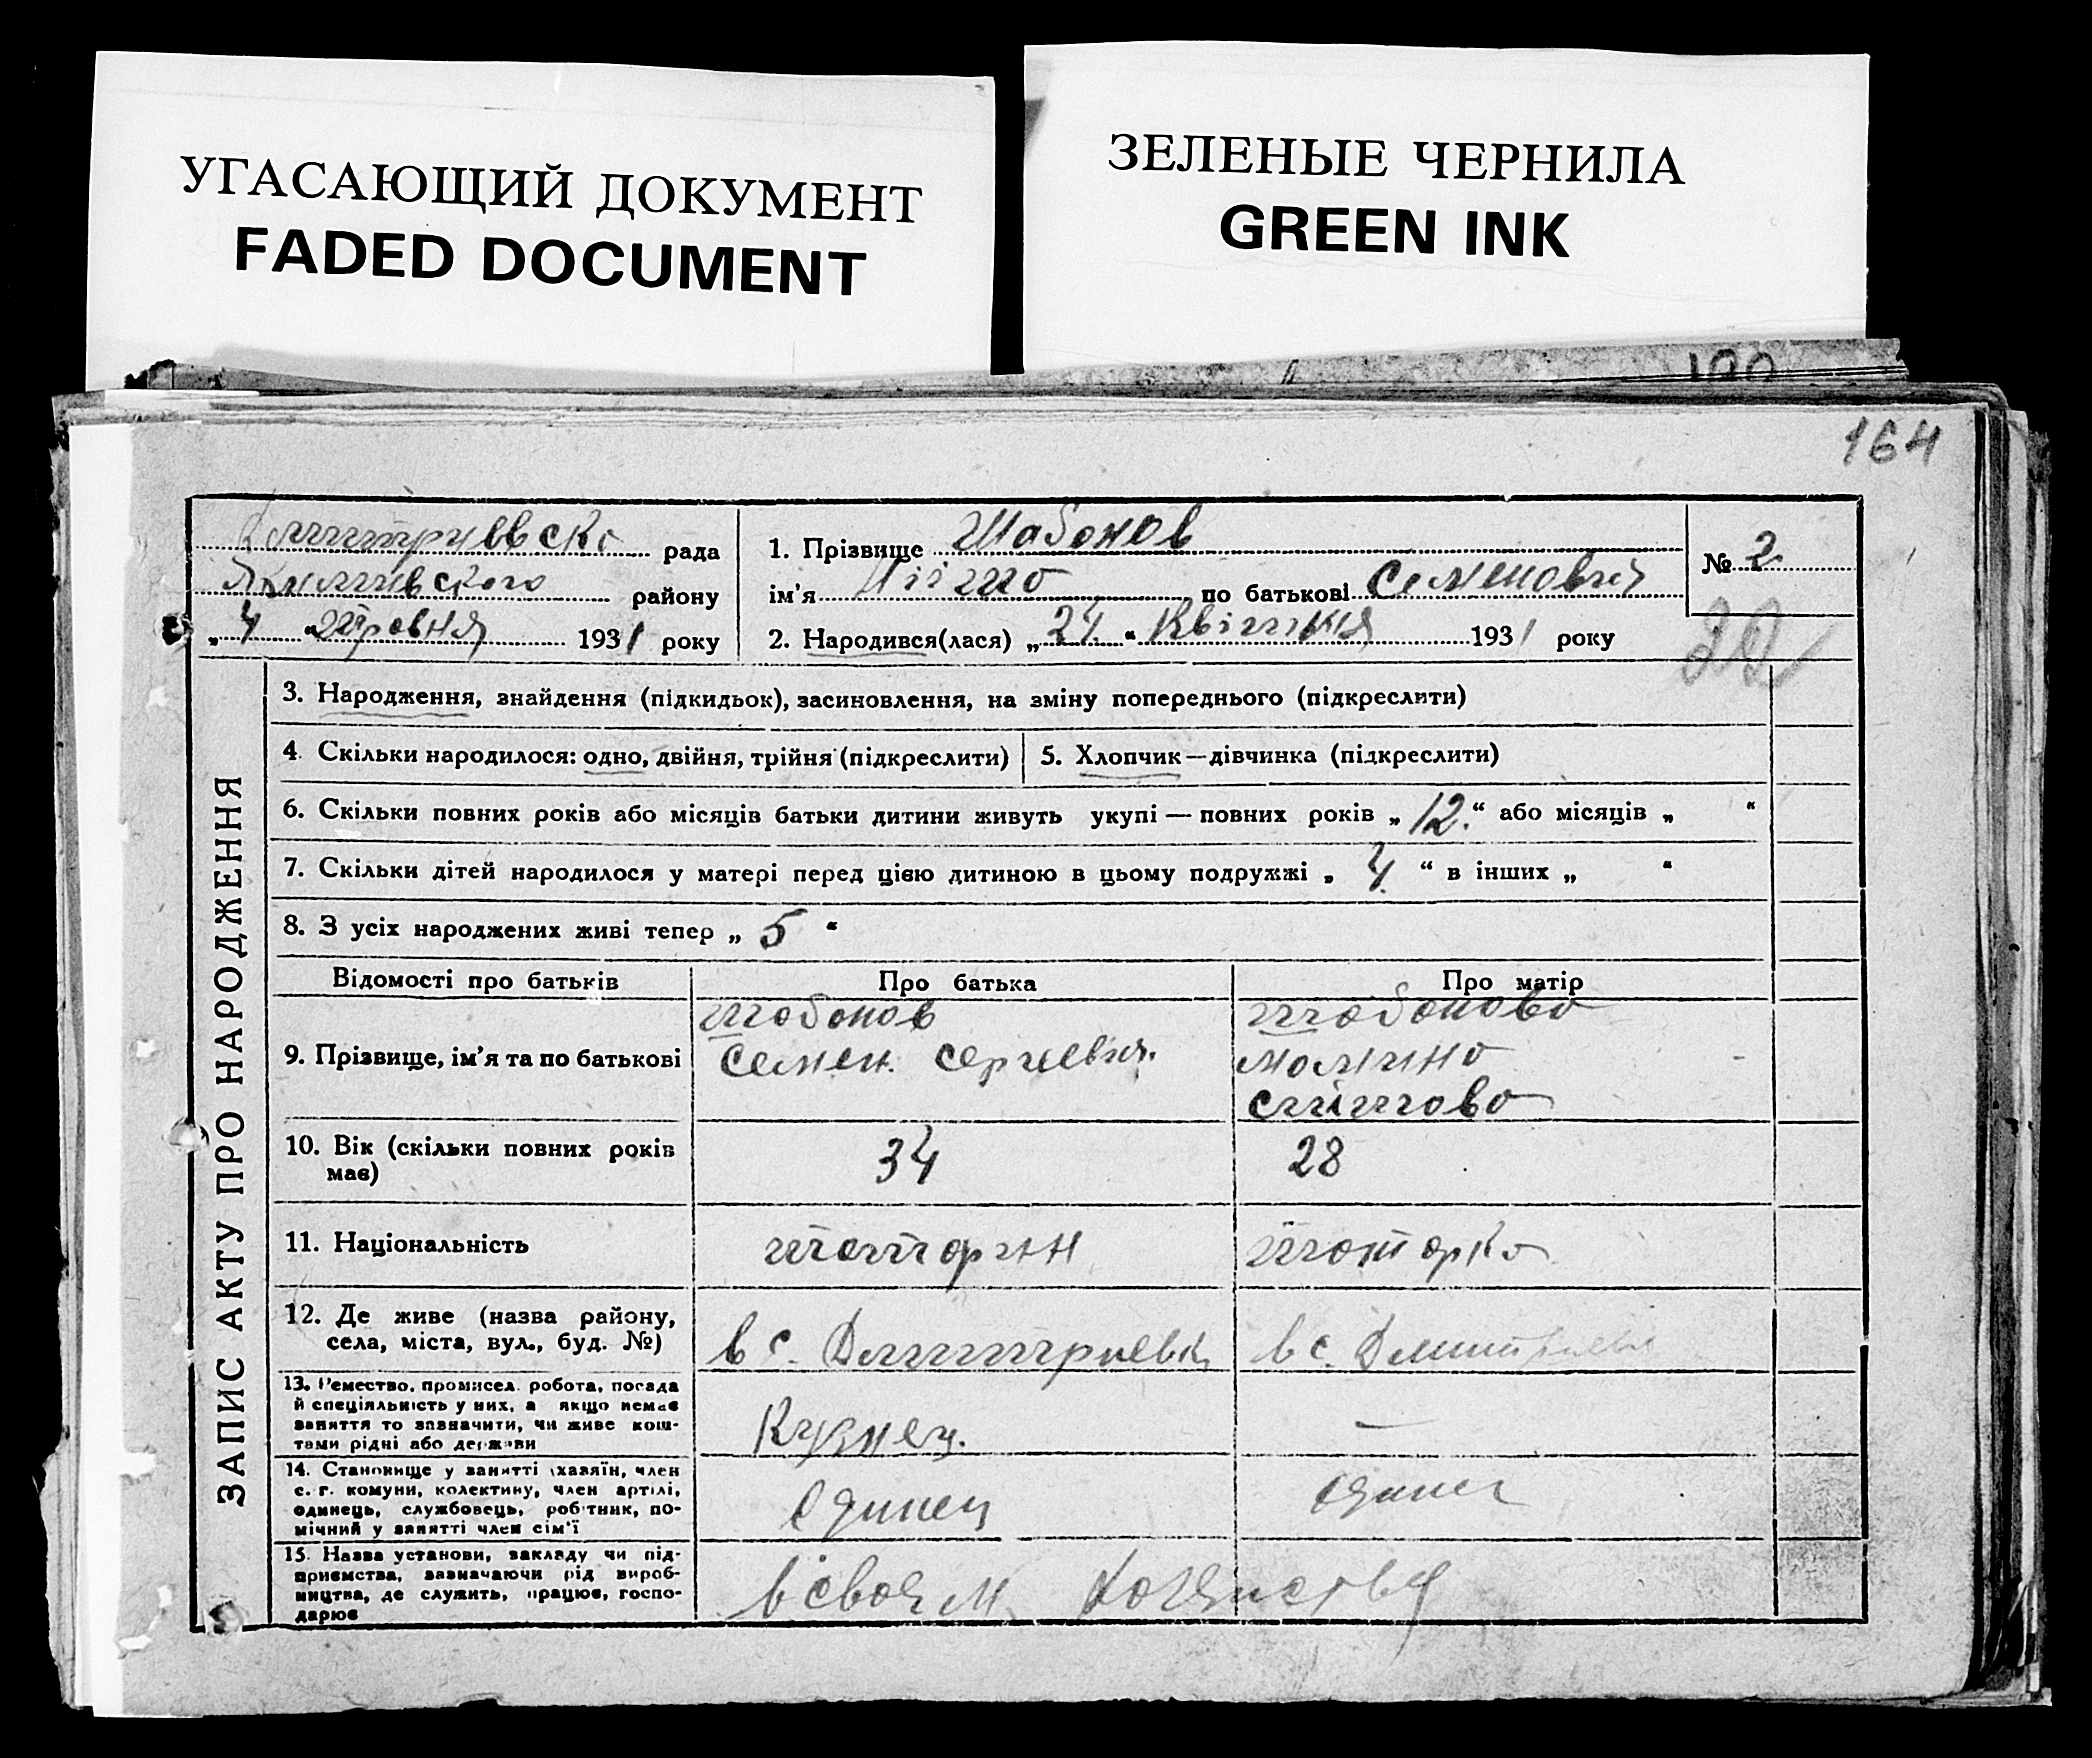 УГАСАЮЩИЙ ДОКУМЕНТ
FADED DOCUMENT
ЗЕЛЕНЫЕ ЧЕРНИЛА
GREEN INK
164
рада
району
„ 4 “ 193 1 року
1. Прізвище Шабонов
ім'я по батькові Семенович
2. Народився(лася) „ 24. “ Квітня 193 1 року
№ 2
22
ЗАПИС АКТУ ПРО НАРОДЖЕННЯ
3. Народження, знайдення (підкидьок), засиновлення, на зміну попереднього (підкреслити)
4. Скільки народилося: одно, двійня, трійня (підкреслити)
5. Хлопчик — дівчинка (підкреслити)
6. Скільки повних років або місяців батьки дитини живуть укупі — повних років „ 12. “ або місяців „ “
7. Скільки дітей народилося у матері перед цією дитиною в цьому подружжі „ 4. “ в інших „ “
8. З усіх народжених живі тепер „ 5 “
Відомості про батьків
Про батька
Про матір
9. Прізвище, ім'я та по батькові
шабонов
Семен. Сергиевич.
шабонова
10. Вік (скільки повних років
має)
34
28
11. Національність
татарин
татарка
12. Де живе (назва району,
села, міста, вул., буд. №)
в с. Дмитриевк
в с. Дмитриевк
13. Ремество, промисел, робота, посада
й спеціяльність у них, а якщо немає
заняття то зазначити, чи живе кош-
тами рідні або держави
Кузнец.
—
14. Становище у занятті (хазяїн, член
с. г. комуни, колективу, член артілі,
одинець, службовець, робітник, по-
мічний у занятті член сім'ї
Єдинец
єдинец
15. Назва установи, закладу чи під-
приємства, зазначаючи рід вироб-
ництва, де служить, працює, госпо-
дарює
в своем